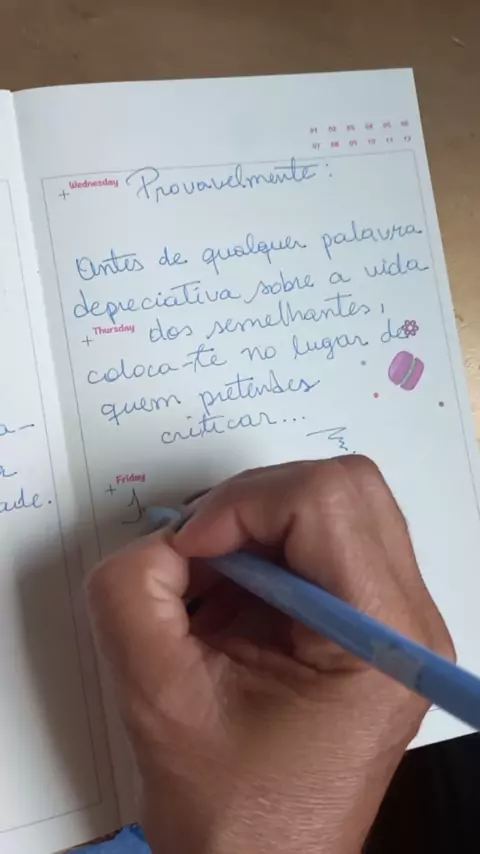 01 02 03 04 05 06
07 08 09 10 11 12
Wednesday Provavelmente:
Antes de qualquer palavra
depreciativa sobre a vida
Thursday dos semelhantes,
coloca-te no lugar de
quem pretendes
criticar...
a-
r
ade.
Friday